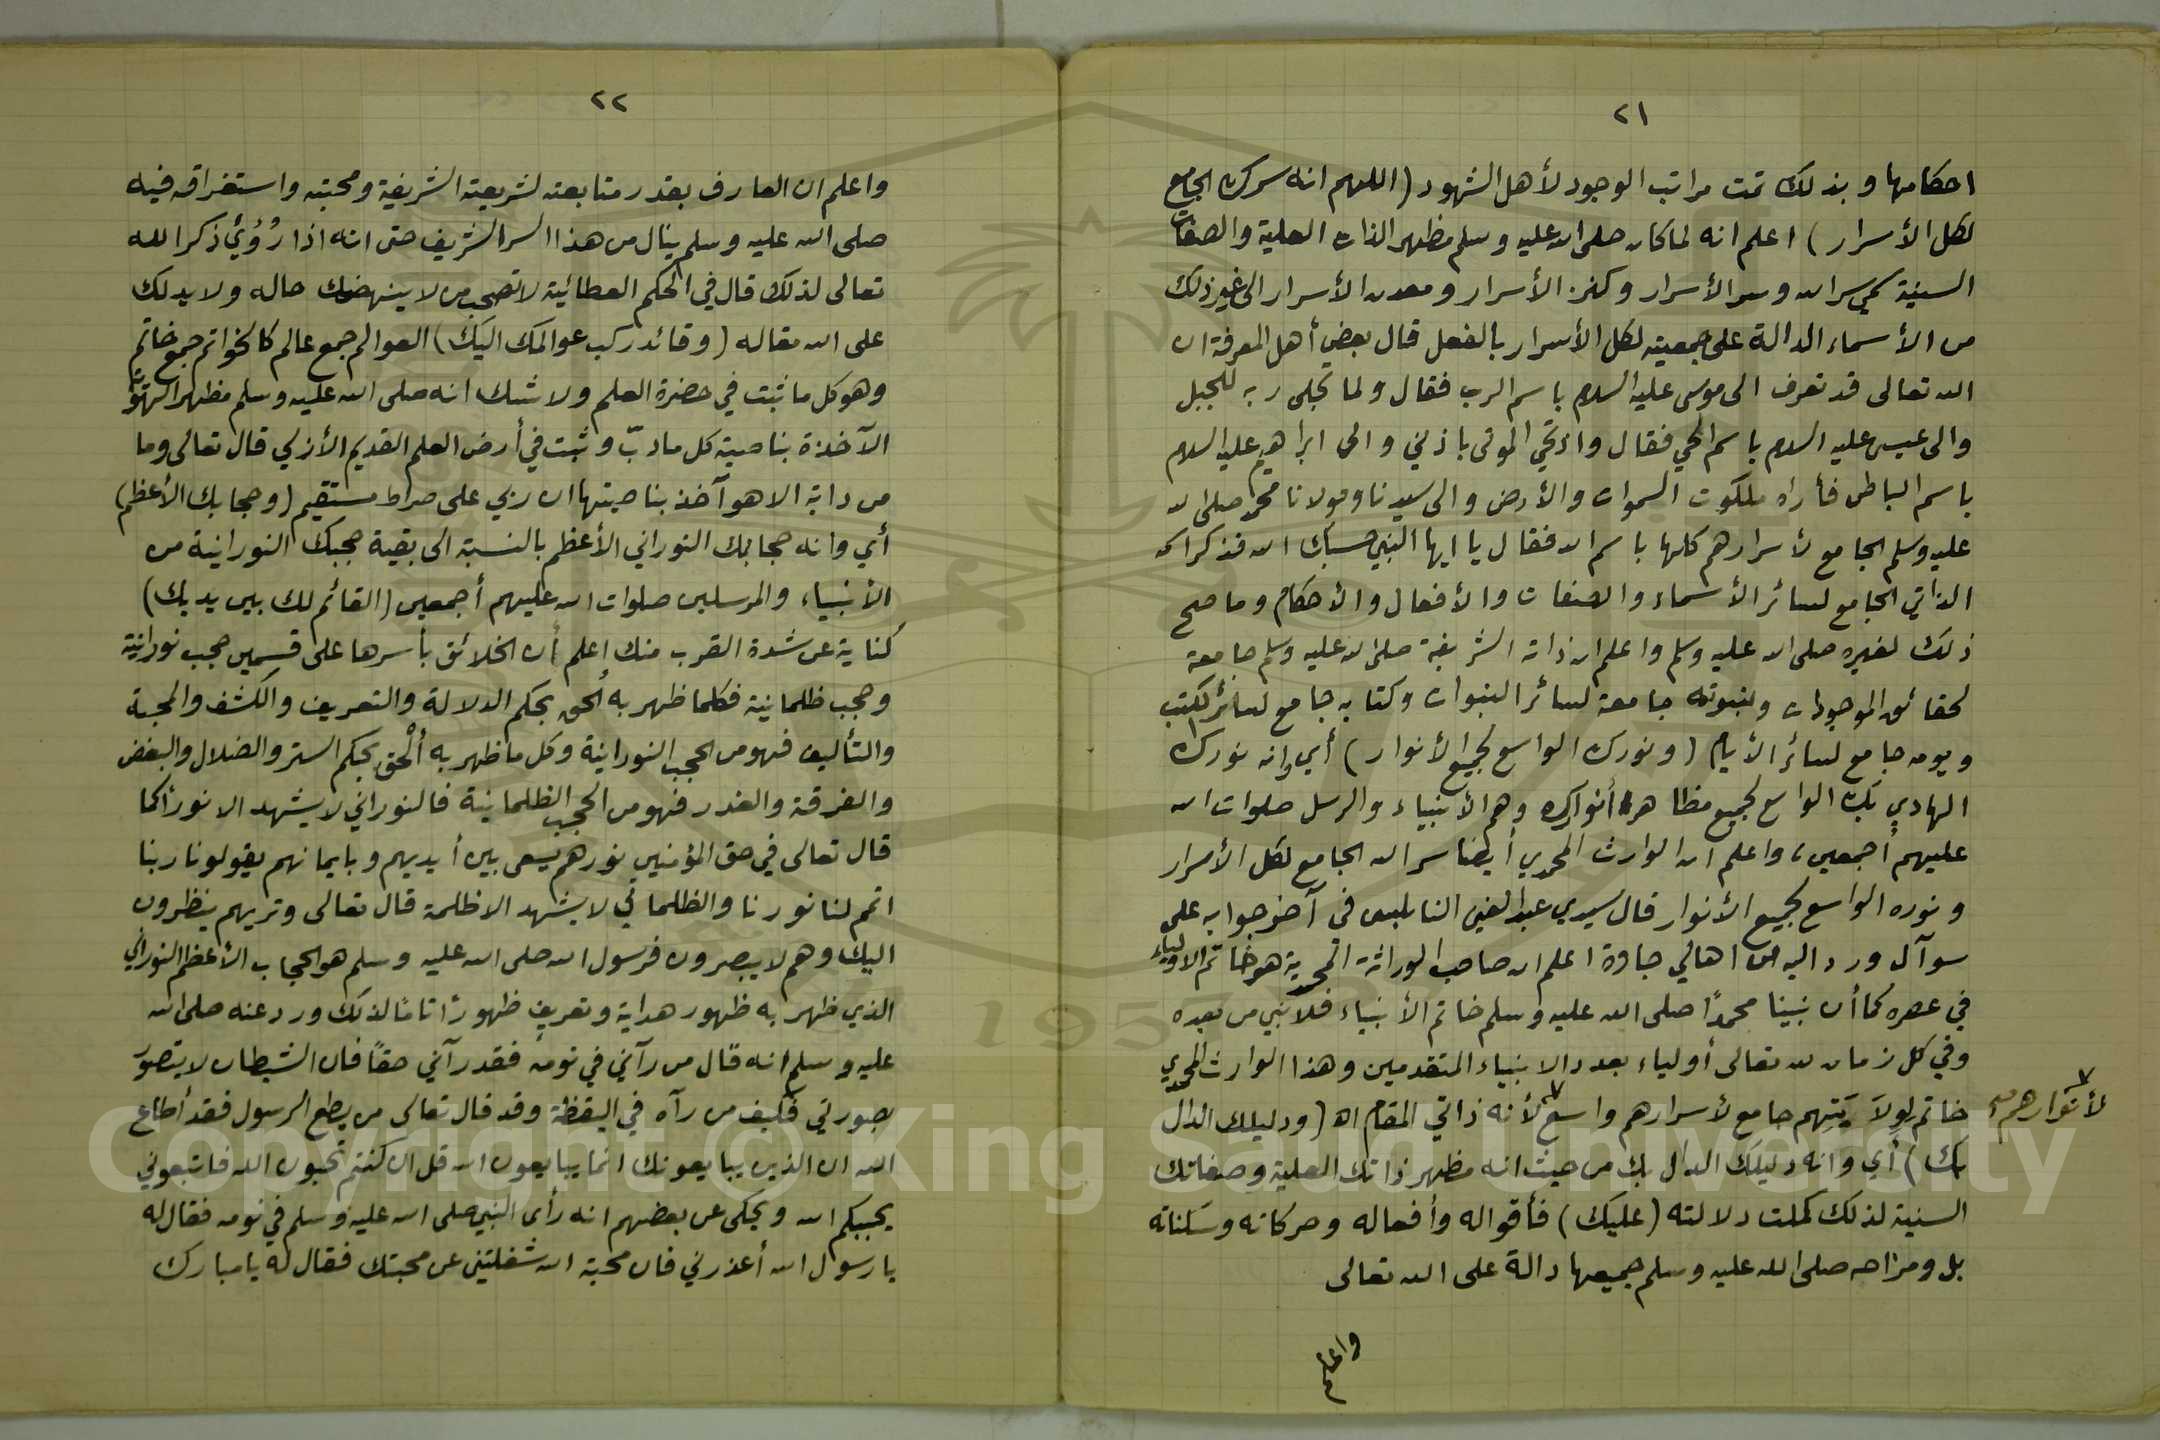 ٢١
احكامها وبذلك تمت مراتب الوجود لأهل الشهود (اللهم انه سرك الجامع
لكل الأسرار) اعلم انه لما كان صلى الله عليه وسلم مظهر الذات العلية والصفات
السنية سمي سر الله وسر الأسرار وكنز الأسرار ومعدن الأسرار الى غير ذلك
من الأسماء الدالة على جمعيته لكل الأسرار بالفعل قال بعض أهل المعرفة ان
الله تعالى قد تعرف الى موسى عليه السلام باسم الرب فقال ولما تجلى ربه للجبل
والى عيسى عليه السلام باسم المحي فقال واذ تحي الموتى باذني والى ابراهيم عليه السلام
باسم الباطن فأراه ملكوت السموات والأرض والى سيدنا ومولانا محمد صلى الله
عليه وسلم الجامع لأسرارهم كلها باسم الله فقال يا ايها النبي حسبك الله فذكر اسمه
الذاتي الجامع لسائر الأسماء والصفات والأفعال والأحكام وما صح
ذلك لغيره صلى الله عليه وسلم واعلم ان ذاته الشريفة صلى الله عليه وسلم جامعة
لحقائق الموجودات ونبوته جامعة لسائر النبوات وكتابه جامع لسائر الكتب
ويومه جامع لسائر الأيام (ونورك الواسع لجميع الأنوار) أي وانه نورك
الهادي بك الواسع لجميع مظاهر أنوارك وهم الأنبياء والرسل صلوات الله
عليهم أجمعين، واعلم ان الوارث المحمدي أيضا سر الله الجامع لكل الأسرار
ونوره الواسع لجميع الأنوار قال سيدي عبد الغني النابلسي في آخر جوابه على
سوآل ورد اليه من اهالي جاوة اعلم ان صاحب الوراثة المحمدية هو خاتم الاولياء
في عصره كما أن نبينا محمدًا صلى الله عليه وسلم خاتم الأنبياء فلا نبي من بعده
وفي كل زمان لله تعالى أولياء بعدد الانبياء المتقدمين وهذا الوارث المحمدي
خاتم لولايتهم جامع لأسرارهم واسع لأنه ذاتي المقام اه (ودليلك الدال
لأنوارهم صح
بك) أي وانه دليلك الدال بك من حيث انه مظهر ذاتك العلية وصفاتك
السنية لذلك كملت دلالته (عليك) فأقواله وأفعاله وحركاته وسكناته
بل ومزاحه صلى الله عليه وسلم جميعها دالة على الله تعالى
واعلم
٢٢
واعلم ان العارف بقدر متابعته لشريعته الشريفة ومحبته واستغراقه فيه
صلى الله عليه وسلم ينال من هذا السر الشريف حتى انه اذا رُؤيَ ذكر الله
تعالى لذلك قال في الحكم العطائية لا تصحب من لا ينهضك حاله ولا يدلك
على الله مقاله (وقائد ركب عوالمك اليك) العوالم جمع عالم كالخواتم جمع خاتم
وهو كل ما ثبت في حضرة العلم ولا شك انه صلى الله عليه وسلم مظهر الهويَّة
الآخذة بناصية كل ما دبّ وثبت في أرض العلم القديم الأزلي قال تعالى وما
من دابة الا هو آخذ بناصيتها ان ربي على صراط مستقيم (وحجابك الأعظم)
أي وانه حجابك النوراني الأعظم بالنسبة الى بقية حجبك النورانية من
الأنبياء والمرسلين صلوات الله عليهم أجمعين (القائم لك بين يديك)
كناية عن شدة القرب منك اعلم أن الخلائق بأسرها على قسمين حجب نورانية
وحجب ظلمانية فكلما ظهر به الحق بحكم الدلالة والتعريف والكشف والمحبة
والتأليف فهو من الحجب النورانية وكل ما ظهر به ألحق بحكم الستر والضلال والبغض
والفرقة والغدر فهو من الحجب الظلمانية فالنوراني لا يشهد الا نورًا كما
قال تعالى في حق المؤمنين نورهم يسعى بين أيديهم وبايمانهم يقولون ربنا
اتمم لنا نورنا والظلماني لا يشهد الا ظلمة قال تعالى وتريهم ينظرون
اليك وهم لا يبصرون فرسول الله صلى الله عليه وسلم هو الحجاب الأعظم النوراني
الذي ظهر به ظهور هداية وتعريف ظهورًا تامًا لذلك ورد عنه صلى الله
عليه وسلم انه قال من رآني في نومه فقد رآني حقًا فان الشيطان لا يتصور
بصورتي فكيف من رآه في اليقظة وقد قال تعالى من يطع الرسول فقد أطاع
الله ان الذين يبايعونك انما يبايعون الله قل ان كنتم تحبون الله فاتبعوني
يحببكم الله ويحكى عن بعضهم انه رأى النبي صلى الله عليه وسلم في نومه فقال له
يا رسول الله أعذرني فان محبة الله شغلتني عن محبتك فقال له يا مبارك
Copyright © King Saud University
1957